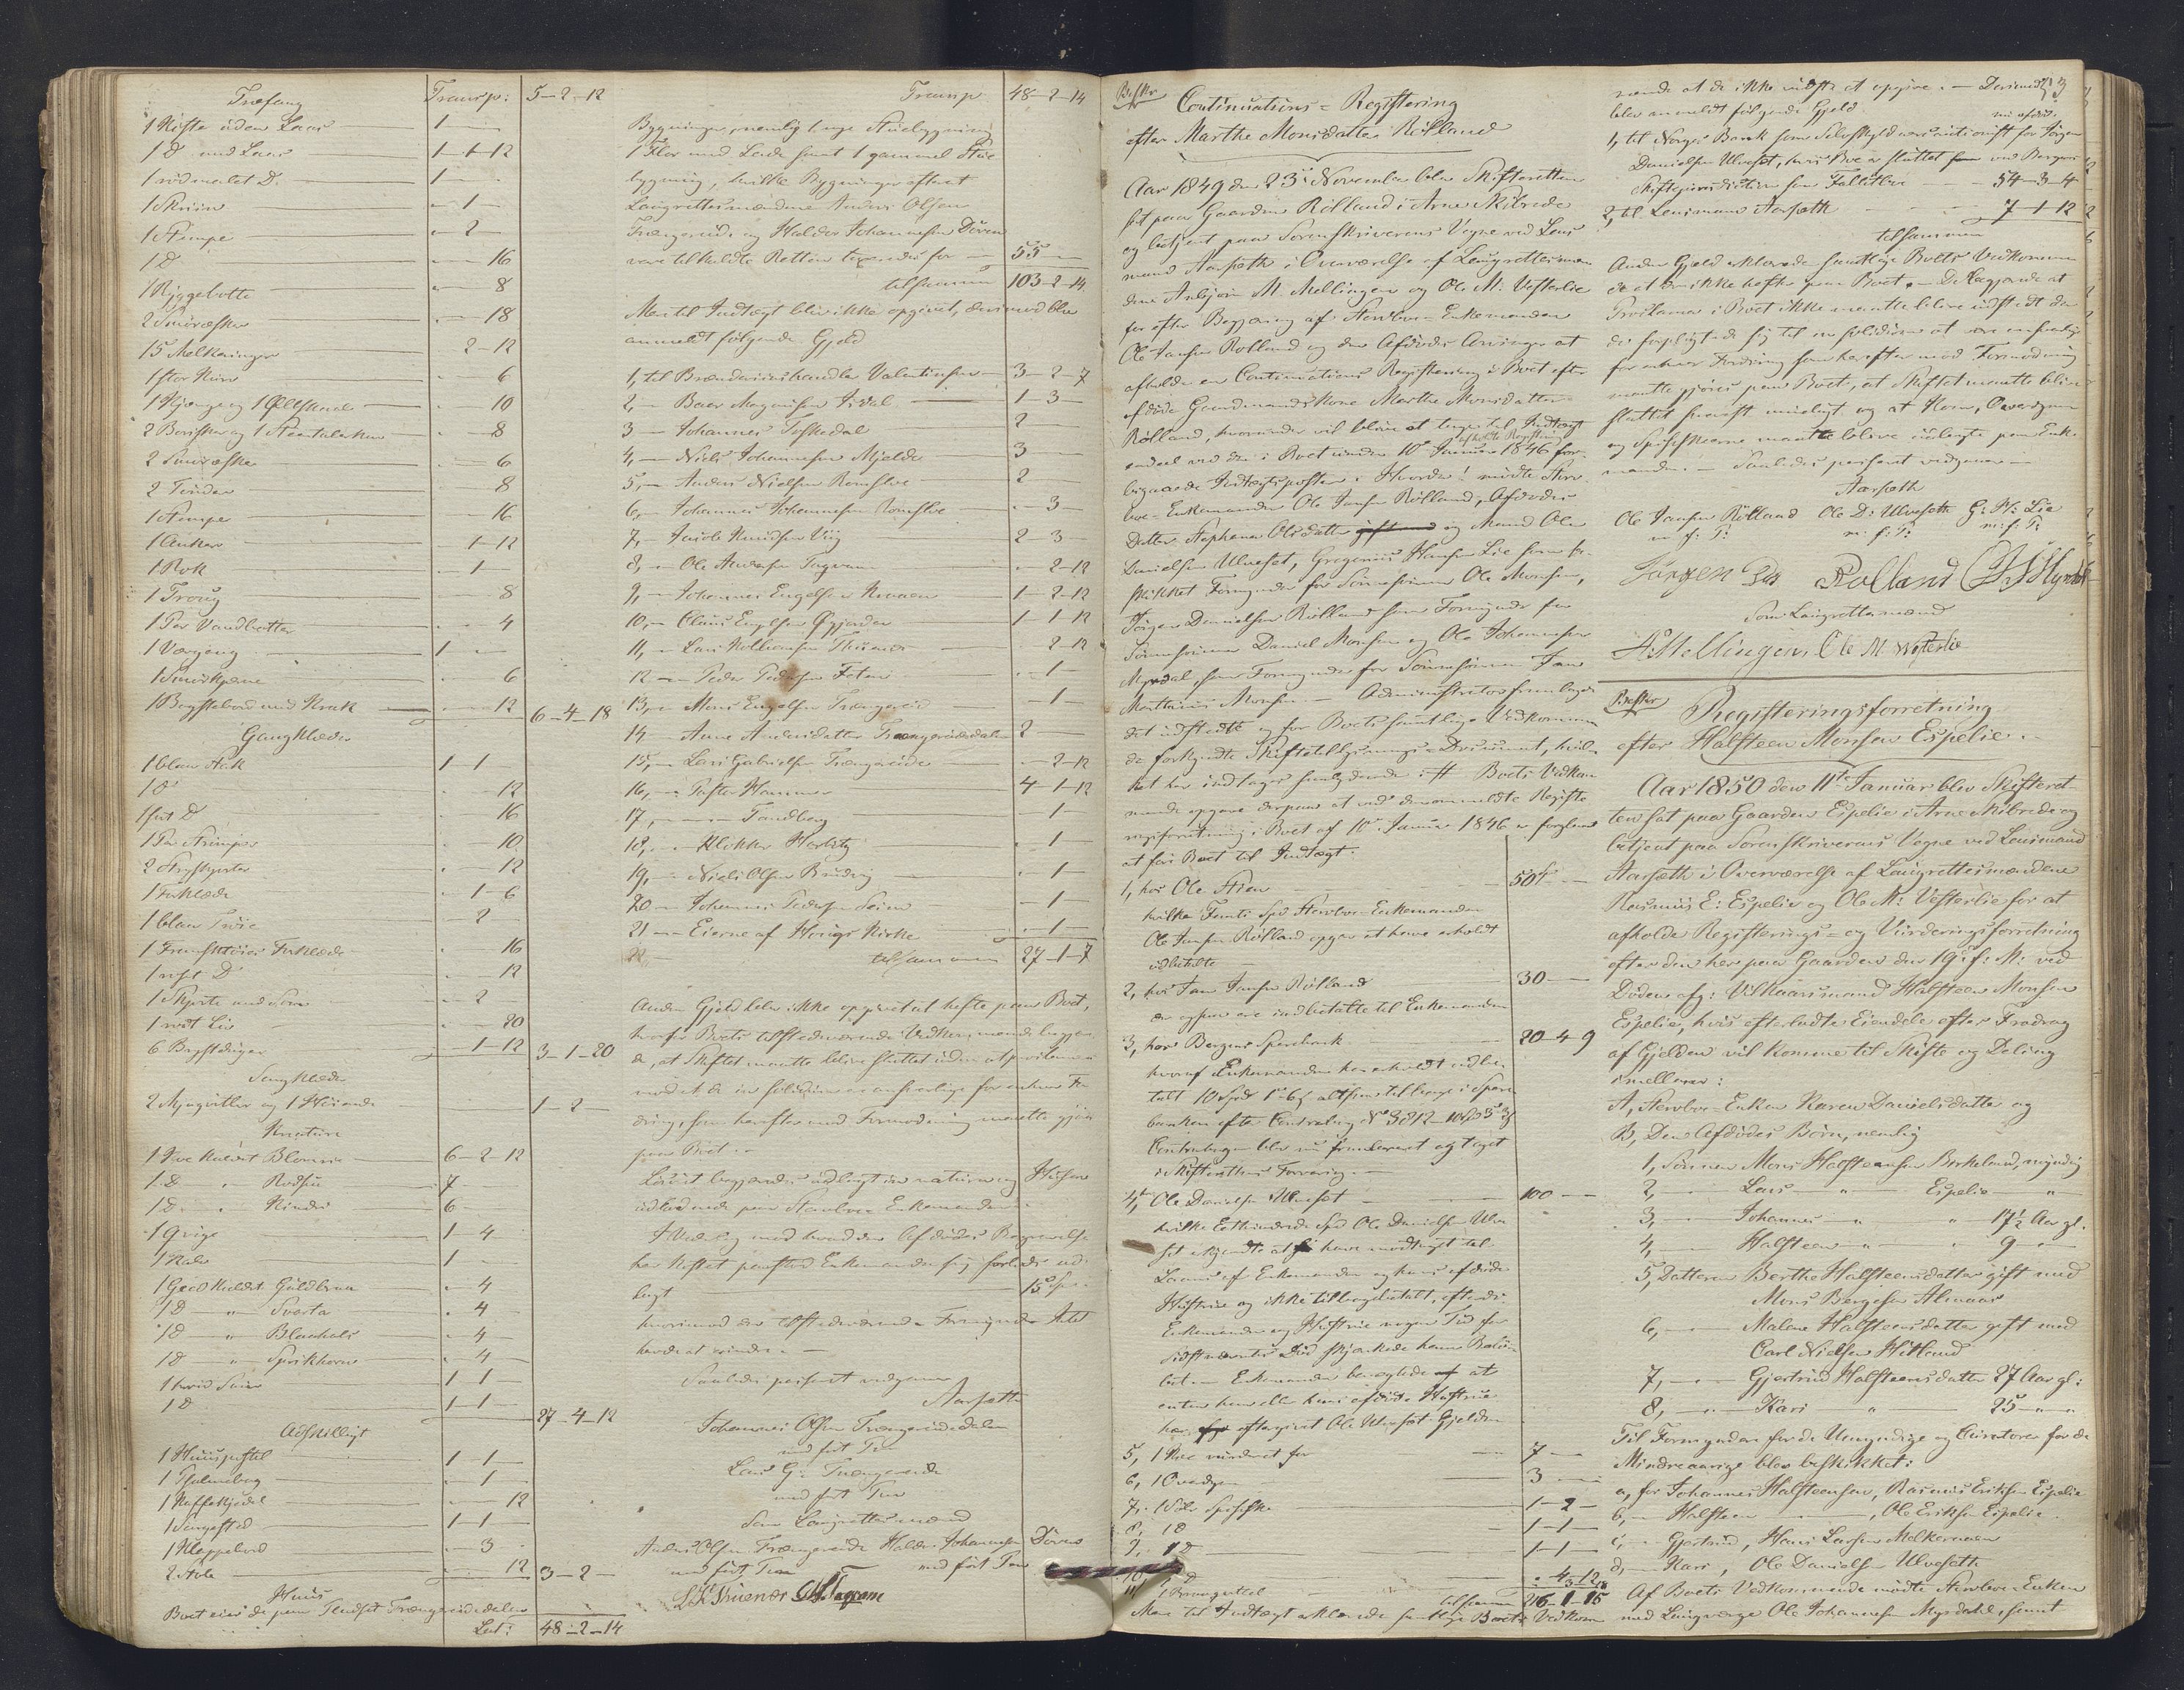 Træfang Transp: 5-2-12
1 Kiste uden Laas 1 -
1 D. med Laas 1-1-12
1 rödmalet D. 1 -
1 Skriin - 1 -
1 Stempe - 2 -
1 D. 16
1 Ryggebötte 8
2 Smöræsker 18
15 Melkeringer 2-12
1 stor 6
1 og 1 Ølskaal 10
2 og 1 8
2 Smöræsker 6
2 Tönder 8
1 Stempe 16
1 Anker 1-12
1 Rok - 1 -
1 Troug 8
1 Par Vandbötter 4
1 1 -
1 6
1 med Krak 12 6-4-18
Gangklæder
1 blaa Stak 1-1-
1 D 12
1 sort D 16
1 Par Strömper 10
2 12
1 Forklæde 1-6
1 blaa Tröie 2
1 Forklæde 16
1 D 12
1 Skjorte med 2
1 rödt Liv 20
6 Brystduger 1-12 3-1-20
Sengklæder
2 og 1 1-2-
Kreature
1 Koe kaldet Blomrei 6-2-12
1 D - " Rödsei 7
1 D - " 6
1 Qvige 1-4
1 Kalv 1 -
1 Geed kaldet Guldbraa - 4
1 D - " Svarta - 4
1 D - " Blaahals - 4
1 D - " - 4
1 hvid 1-1
1 D 1-1- 27-4-12
Adskilligt
1 Huuspostil 1-1
1 Psalmebog - 1 -
1 Kaffekjedel 12
1 Sengested 1-1-
1 Klappebord 3
2 Stole 12 3-2-
Huus
Boet eier de paa Pladset Trængereidsdalen
Lat: 48-2-14
Transp 48-2-14
Bygninger, nemlig 1 nye Stuebygning
1 Flor med Lade samt 1 gammel Stue
bygning, hvilke Bygninger efter at
Laugrettesmændene Anders Olsen
Trængereide og Halder Johannesen Döven
vare tilkaldte Retten taxeredes for - 55 -
tilsammen 103-2-14
Mere til Indtægt blev ikke opgivet, derimod blev
anmeldt følgende Gjeld
1, til Brændeviinshandler Valentinsen 3-2-7
2, - Baar Mognesen 1-3-
3 - Johannes 2 -
4, - Niels Johannesen Mjelde 3 -
5, - Anders Nielsen Romslo 2 -
6, - Johannes Johannesen Romslo - 3 -
7, - Jacob Knudsen Viig 2-3-
8, - Ole Andersen - 2-12
9, - Johannes Engelsen 1-2-12
10, - Claus Engelsen Gjærder 1-1-12
11, - Lars 2-12
12 - Peder Pedersen - 1 -
13, - Mons Engelsen Trængereid - 1 -
14 - Anne Andersdatter Trængereidsdalen 2 -
15, - Lars Gabrielsen Trængereide - 2-12
16, - Pastor 4-1-12
17, - Tandberg - 1 -
18, - Klokker Herlitz - 1 -
19, - Niels Olsen - 1 -
20 - Johannes Pedersen - 1 -
21 - Eierne af Houge Kirke - 1 -
tilsammen 27-1-7
Anden Gjeld blev ikke opgivet at hefte paa Boet,
hvorfor Boets tilstedeværende Vedkommende begjær-
de, at Skiftet maatte blive sluttet uden at proclamere
mod at de in solidum ere ansvarlige for enhver For
dring, som herefter mod Formodning maatte gjöres
paa Boet.
Löset begjæredes udlagt in natura og Husene
udlodnede paa Stervboe Enkemanden.
I Anledning med hvad den Afdödes Begravelse
har kostet paastod Enkemanden sig forlods ud
lagt 15 Spd.
hvorimod den tilstedeværende Formynder Intet
havde at erindre. -
Saaledes passeret vedgaaes
Aarsæth
Johannes Olsen Trængereidsdalen
med fört Pen
Lars G: Trængereide
med fört Pen
Som Laugrettesmænd
Anders Olsen Trængereide Halder Johannesen Döven
med fört Pen med fört Pen
23
Besktr
Continuations-Registering
efter Marthe Monsdatter Rölland
Aar 1849 den 23de November blev Skifteretten
sat paa Gaarden Rölland i Arne Skibrede
og betjent paa Sorenskriverens Vegne ved Lens
mand Aarsæth i Overværelse af Laugrettesmæn
dene Asbjörn M. Mellingen og Ole M: Vesterlie
for efter Begjæring af Stervboe-Enkemanden
Ole Jansen Rölland og den Afdödes Arvinger at
afholde en Continuations Registering i Boet efter
afdöde Gaardmandskone Marthe Monsdatter
Rölland, hvorunder vil blive at tage til Indtægt
endeel ved den i Boet under 10de Januar 1846 afholdte Registering for-
bigaaede Indtægtsposter. Hvorda! mödte Stervboe-
Enkemanden Ole Jansen Rölland, Afdödes
Datter Stephena Olsdatter og Mand Ole
Danielsen Ulveset, Gregorius Hansen Lie som be-
skikket Formynder for Sönnesönnen Ole Monsen,
Jörgen Danielsen Rölland som Formynder for
Sönnesönnen Daniel Monsen og Ole Johannesen
Myrdal, som Formynder for Sönnesönnen Jan
Martinus Monsen. - Administrator fremlagde
det udstædte og for Boets samtlige Vedkommen
de forkyndte Skiftetillysnings-Document, hvil-
ket her indtages saalydende: # Boets Vedkom-
mende opgave derpaa at ved den anmeldte Registe
ringsforretning i Boet af 10de Januar 1846 er forglemt
at före Boet til Indtægt.
1, hos Ole Stien 50 -
hvilke Femti Spd Stervboe-Enkemanden
Ole Jansen Rölland opgav at have erholdt
udbetalte
2, hos Jan Jansen Rölland 30 -
der ogsaa ere indbetalte til Enkemanden
3, hos Bergens Sparebank 20-4-9
hvoraf Enkemanden har erholdt udbe
talt 10 Spd altsaa tilbage i Spare-
banken efter Contrabog No 3812 - 10
Contrabogen blev nu fremleveret og taget
i Skifterettens Forvaring. -
4, Ole Danielsen Ulveset 100 -
hvilke Eethundrede Spd Ole Danielsen Ulve
set erkjendte at have modtaget til
Laans af Enkemanden og hans afdöde
Hustrue og ikke tilbagebetalt, efterdi
Enkemanden og Hustrue nogen Tid för
Sidstnævntes Död skjænkede ham Belö-
bet. - Enkemanden benægtede at
enten han eller hans afdöde Hustrue
har eftergivet Ole Ulveset Gjelden
5, 1 Koe vurderet for 7 -
6, 1 3 -
7, 1 Sölv Spiseskee 1-2-
8, 1 D 1-1-
9, 1 D 1-1-
10, 1 D - 4-12
11, 1
tilsammen
Mere til Indtægt erklærede samtlige Boets Vedkom
mende at de ikke vidste at opgive. - Derimod
blev anmeldt følgende Gjeld
1, til Norges Bank som Selvskyldner for Jörgen
Danielsen Ulveset, hvis Boe er sluttet ved Bergens
Skiftejurisdiction som Fallitboe 54-3-4
2, til Lensmand Aarsæth 7-1-12
tilsammen
Anden Gjeld erklærede samtlige Boets Vedkommen
de at der ikke hefter paa Boet. - De begjærede at
Proclama i Boet ikke maatte blive udstedt da
de forpligtede sig til in solidum at være ansvarlige
for enhver Fordring som herefter mod Formodning
maatte gjöres paa Boet, at Skiftet maatte blive
sluttet snarest mueligt og at Koen,
og Spiseskeerne maatte blive udlagte paa Enke-
manden. - Saaledes passeret vedgaaes -
Aarsæth
Ole Jansen Rölland Ole D: Ulveseth G: H: Lie
m: f: P: m: f: P: m: f: P:
Jörgen Ds Rolland
Som Laugrettesmænd
AMMellingen, Ole M Vesterlie
Besktr
Registeringsforretning
efter Halsteen Monsen Espelie. -
Aar 1850 den 11te Januar blev Skifteret-
ten sat paa Gaarden Espelie i Arne Skibrede og
betjent paa Sorenskriverens Vegne ved Lensmand
Aarsæth i Overværelse af Laugrettesmændene
Rasmus E: Espelie og Ole M: Vesterlie for at
afholde Registerings- og Vurderingsforretning
efter den her paa Gaarden den 19de f: M: ved
Döden afg: Vilkaarsmand Halsteen Monsen
Espelie, hvis efterladte Eiendele efter Fradrag
af Gjelden vil komme til Skifte og Deling
imellem:
A, Stervboe-Enken Karen Danielsdatter og
B, Den Afdödes Börn, nemlig
1, Sönnen Mons Halsteensen Birkeland, myndig
2, - Lars - " Espelie - "
3, - Johannes - " " 17½ Aar gl.
4, - Halsteen - " " 9 "
5, Datteren Berthe Halsteensdatter gift med
Mons Bergesen Almaas
6, - Malene Halsteensdatter gift med
Carl Nielsen Hitland
7, - Gjertrud Halsteensdatter 27 Aar gl:
8, - Kari " 25 - "
Til Formyndere for de Umyndige og Curatorer for de
Mindreaarige blev beskikket:
a, for Johannes Halsteensen, Rasmus Eriksen Espelie
b, - Halsteen - , Ole Eriksen Espelie.
c, - Gjertrud, Hans Larsen
d, - Kari, Ole Danielsen Ulveseth
Af Boets Vedkommende mödte Stervboe-Enken
med Laugværge Ole Johannesen Myrdahl, samt